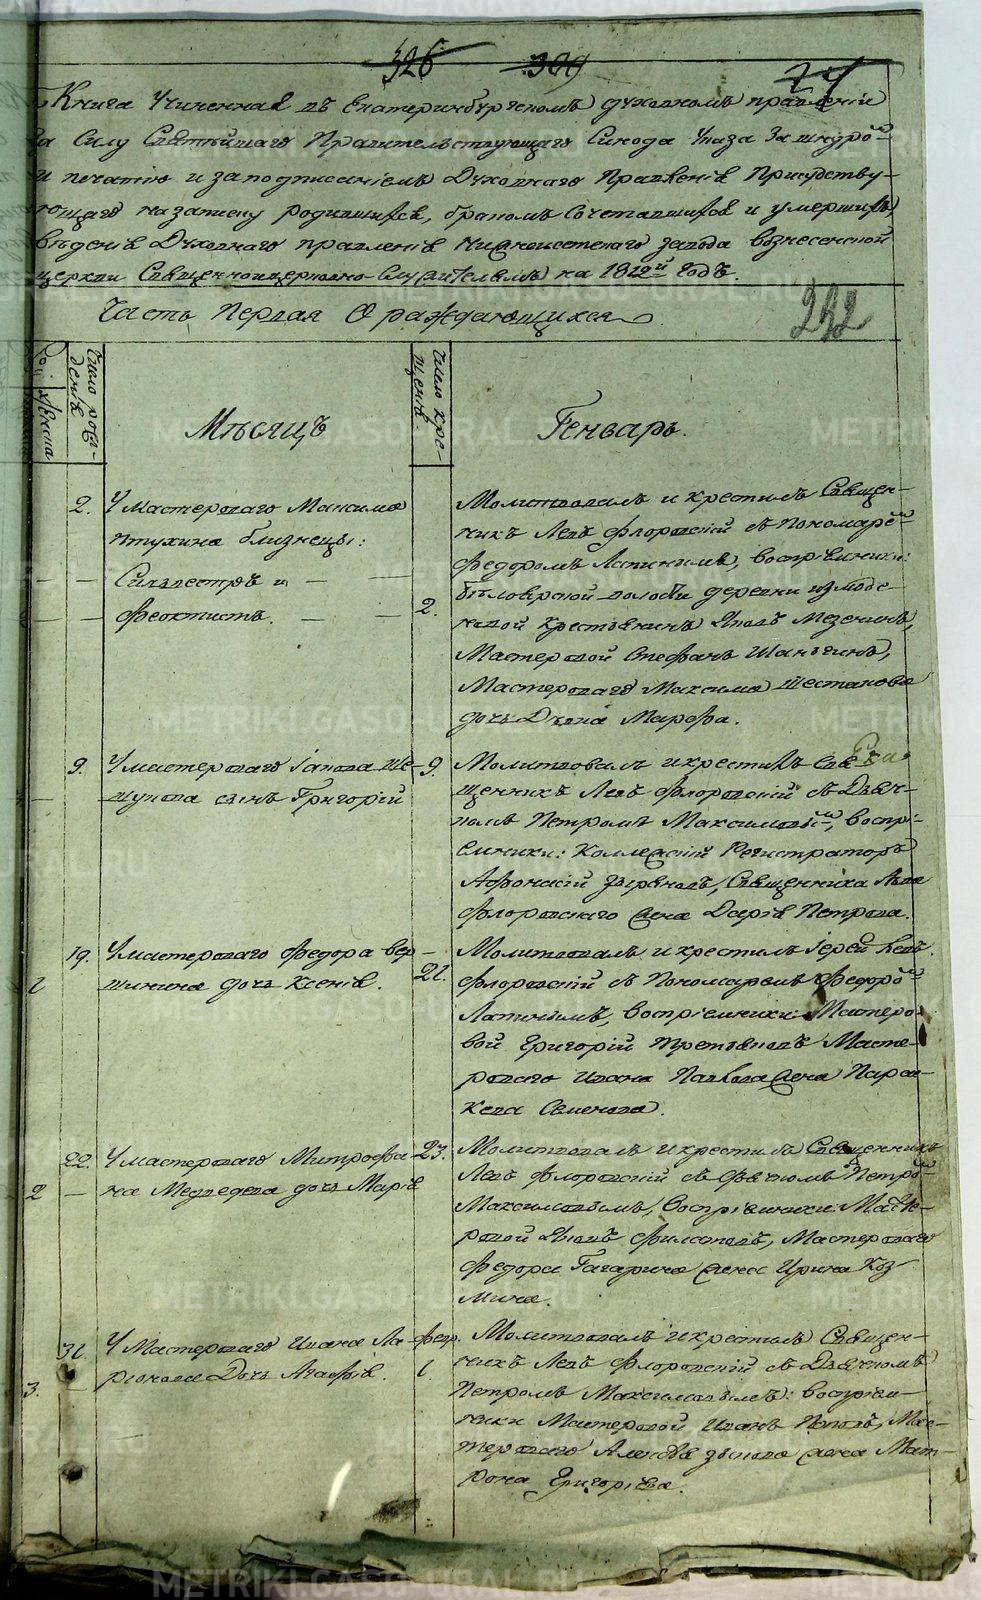 326 300 74
Книга Учиненная въ Екатеринбургскомъ духовномъ правленiи
въ Силу Святѣйшаго Правительствующаго Синода Указа За шнуро͞м
и печатiю и заподписанiемъ Духовнаго Правленiя Присудству-
ющаго на записку родившихся, бракомъ Сочетавшихся и умершихъ
вѣденiя Духовнаго правленiя Нижноисетскаго завода вознесенской
церкви Священноицерковно-Служителямъ на 1812й Годъ.
Часть Первая О раждающихся
242
Число рож-
денiя
Женска
Мѣсяцъ
Число кре-
щенiя.
Генварь.
2. У Мастероваго Максима
Птухина близнецы:
Силвестръ и
Феоктистъ.
2.
Молитвовалъ и крестилъ Священ-
никъ Левъ Флоровскiй съ Пономаре͞м
Федоромъ Лапинымъ, воспрiемники:
бѣлоярской волости деревни измоде-
новой крестьянинъ Яковъ Мезенинъ,
Мастеровой Стефанъ Шаньгинъ,
Мастероваго Максима Шестакова
дочь Дѣвка Марфа.
9. У мастероваго Iакова Ше-
шукова сынъ Григорiй
9.
Молитвовалъ и крестилъ Свя-
щенникъ Левъ Флоровскiй съ Дьяч-
комъ Петромъ Максимовы͞м, Воспрi-
емники: Коллежскiй Регистраторъ
Афонасiй Зыряновъ, Священника Льва
Флоровскаго жена Дарiя Петрова.
1 19. У мастероваго Федора Вер-
шинина дочь Ксенiя.
21.
Молитвовалъ и крестилъ Iерей Левъ
Флоровскiй съ Пономаремъ Федоро͞м
Лапинымъ, Воспрiемники: Мастеро-
вой Григорiй Третьяковъ Масте-
роваго Ивана Павлова жена Парас-
кева Семенова.
2 22. У мастероваго Митрофа-
на Медведева дочь Марiя
23.
Молитвовалъ и крестилъ Священникъ
Левъ Флоровскiй съ Дьячкомъ Петро͞м
Максимовымъ, Воспрiемники: Масте-
ровой Яковъ Филатовъ, Мастероваго
Федора Гагарина жена Ирина Коз-
мина.
3. 31. У Мастероваго Ивана Ла-
рiонова Дочь Агафiя.
Февр.
1.
Молитвовалъ и крестилъ Священ-
никъ Левъ Флоровскiй съ Дьячкомъ
Петромъ Максимовымъ: воспрiем-
ники Мастеровой Иванъ Поповъ, Мас-
тероваго Алексѣя Зыкова жена Мат-
рона Григорiева.
METRIKI.GASO-URAL.RU